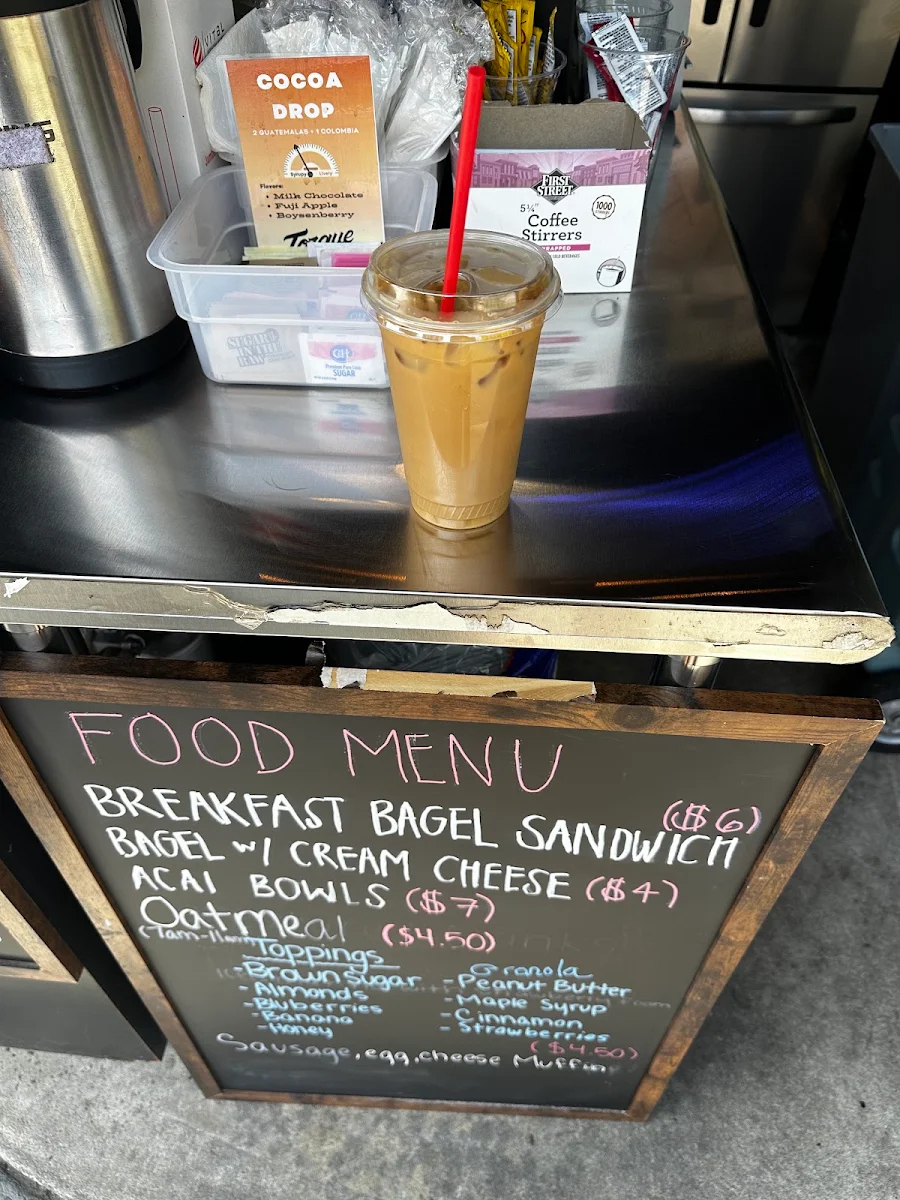 VITAL
COCOA
DROP
2 GUATEMALAS • 1 COLOMBIA
Syrupy
Lively
Flavors:
• Milk Chocolate
• Fuji Apple
• Boysenberry
Torque
FIRST
STREET
1000
5 1/4"
Coffee
Stirrers
WRAPPED
SUGAR
IN THE
RAW
GH
Premium Pure Cane
SUGAR
FOOD MENU
BREAKFAST BAGEL SANDWICH ($6)
BAGEL w/ CREAM CHEESE ($4)
ACAI BOWLS ($7)
Oatmeal ($4.50)
(7am-11am)
Toppings
- Brown Sugar
- Almonds
- Bluberries
- Banana
- Honey
Granola
- Peanut Butter
- Maple Syrup
- Cinnamon
- Strawberries
Sausage, egg, cheese Muffin ($4.50)